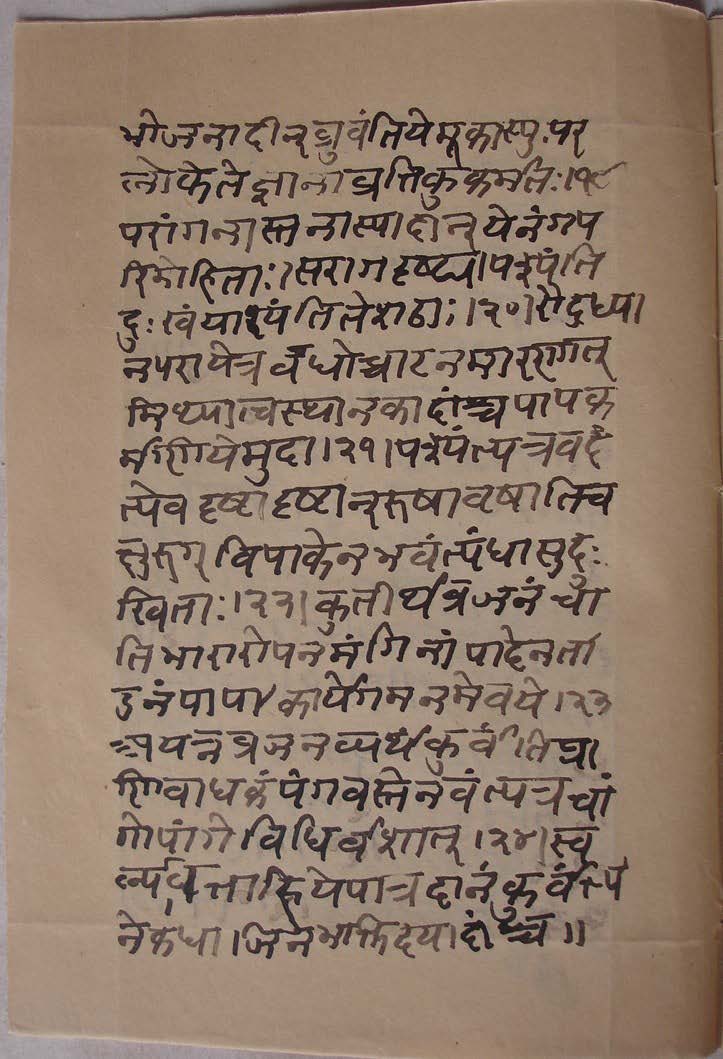 भोजनादीन् ध्रुवंति ये मूकास्पु.पर
लोके ते ज्ञानाव्रत्तिकुकर्मतः।१९
परांगनास्तनास्यादीन् ये नंगप
रिमोहिताः।सरागदृष्ट्या।पश्यंति
दुःखंयाश्यंतितेशठाः।२०।रौदुध्या
नपरायेत्र वधोच्चाटनमारणान्
मिथ्यात्वस्थानकादींश्च पापक
र्माणिये मुदा।२१।पश्यंत्यत्रवदं
त्येव दृष्टादृष्टान् रुषावषातिव
विपाकेन भवंत्यंधासुदुः
खिताः।२२।कुतीर्थव्रजनं चा
तिभारारोपनमंगिनां पादेनता
डनंपापाकार्येगमनमेवये।२३
यत्नव्रजनव्यर्थं कुर्वंतिप्रा
णिवाधकं पंगवस्तेनवंत्यत्रचां
गोपांगे विधिर्वशात्।२४।स्व
येपात्रदानं कुर्वंत्य
नेकधा।जिनभक्तिदयादींश्च॥